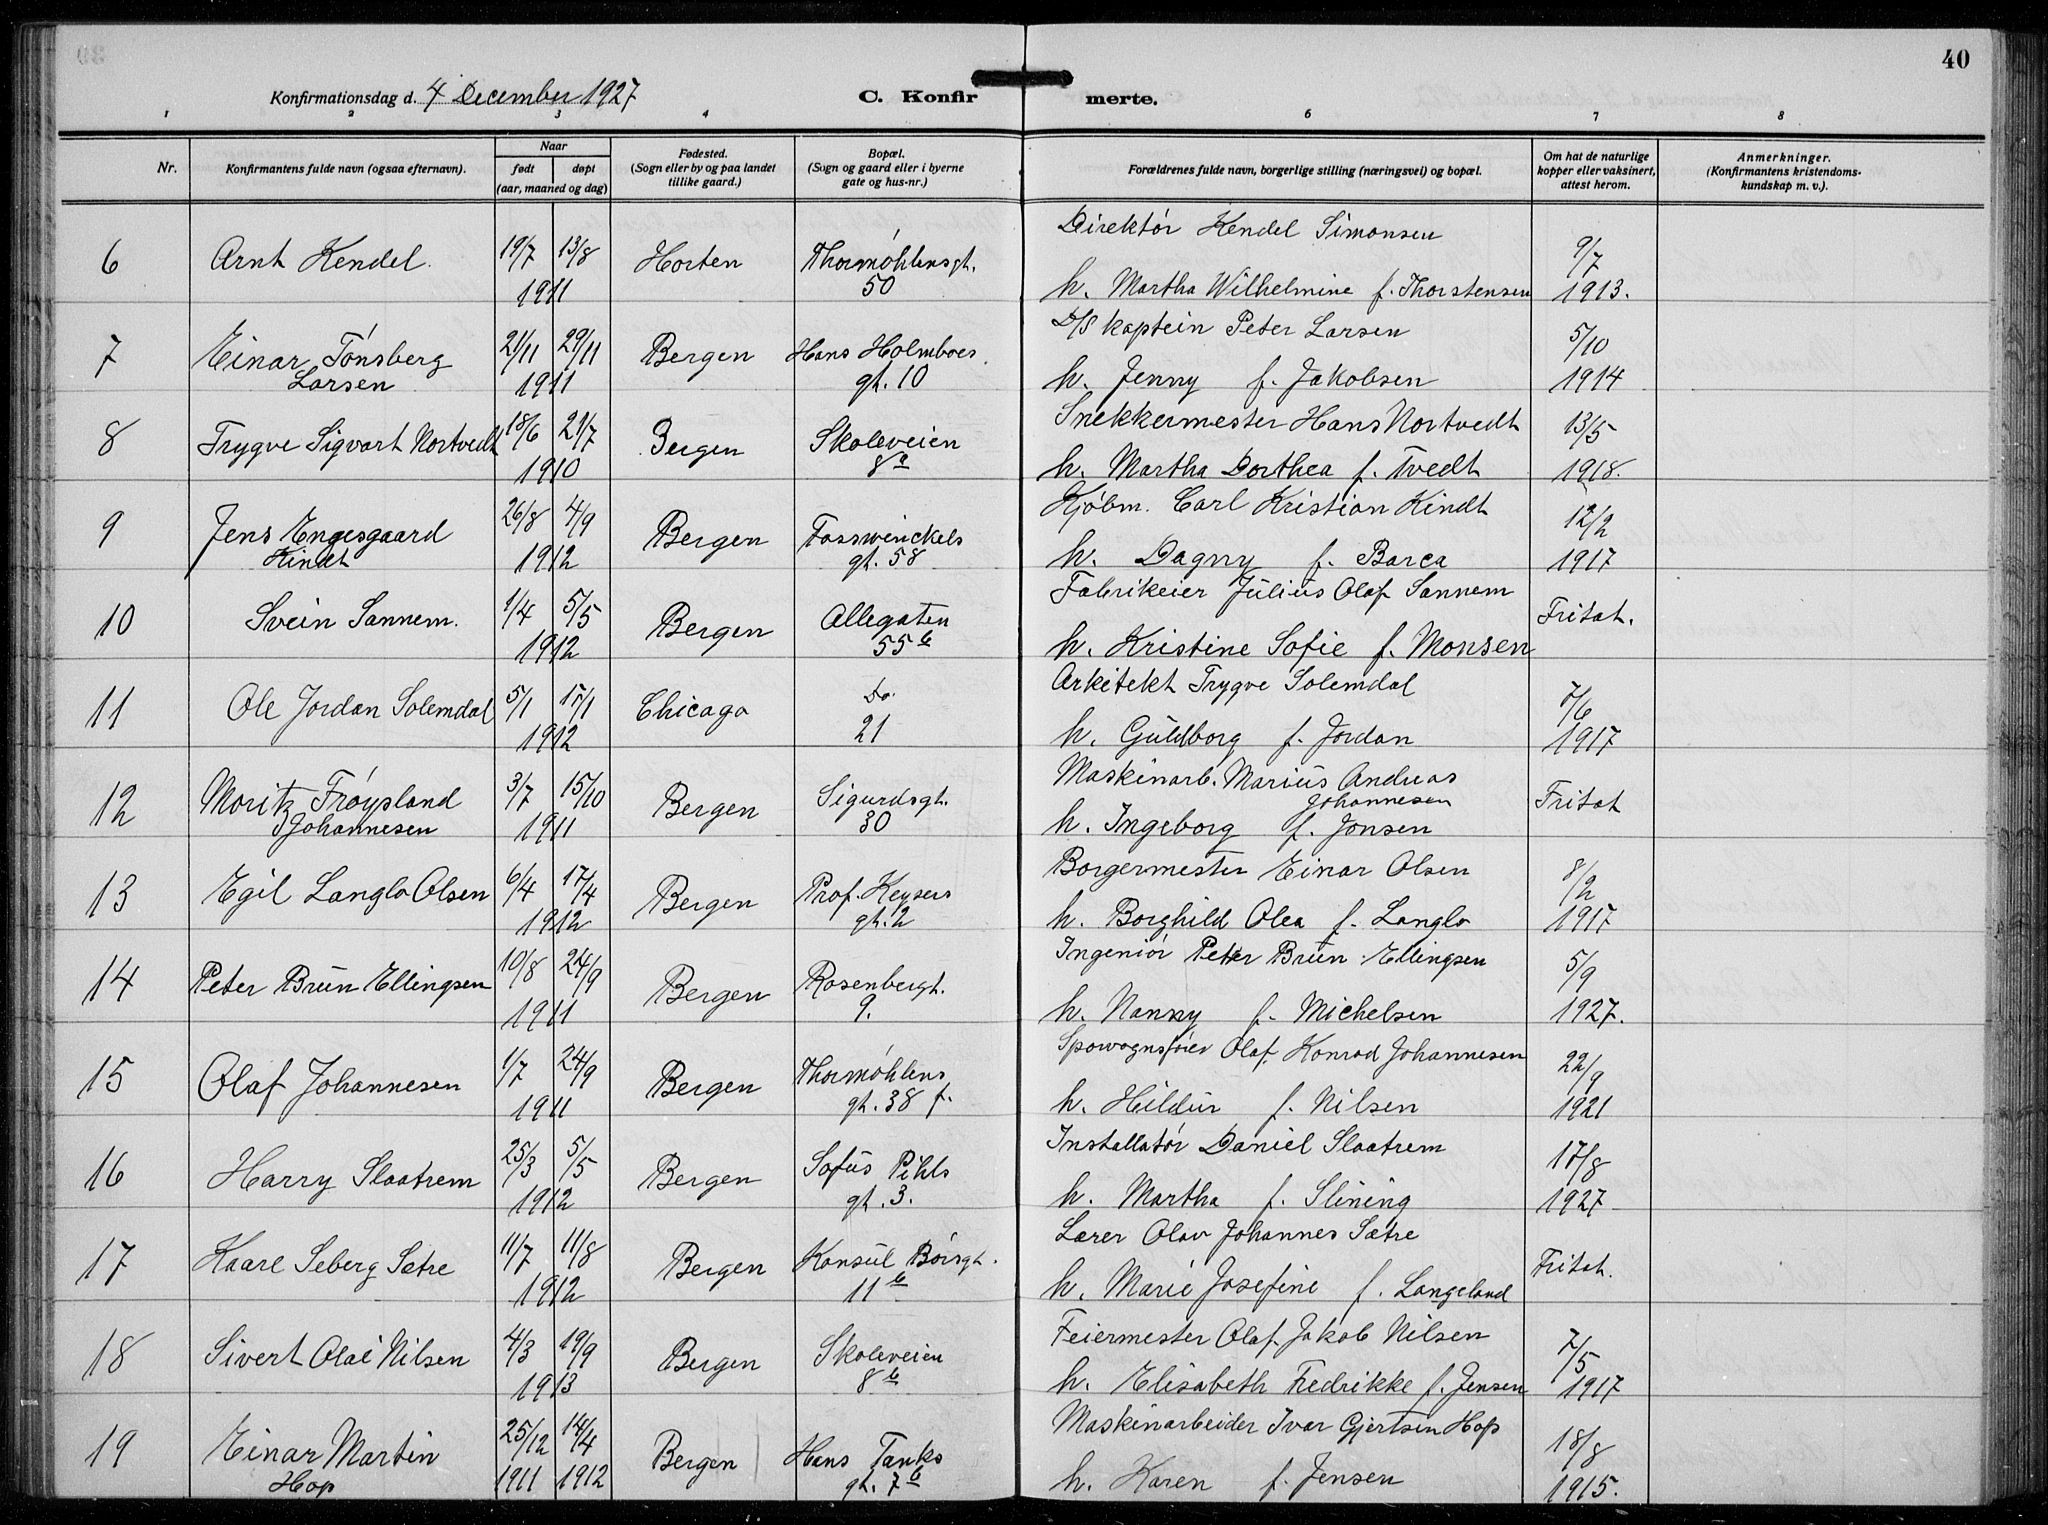 40
Konfirmationsdag d. 4 December 1927 C. Konfirmerte.
1 2 3 4 6 7 8
Nr. Konfirmantens fulde navn (ogsaa efternavn). Naar født døpt (aar, maaned og dag) Fødested. (Sogn eller by og paa landet tillike gaard.) Bopæl. (Sogn og gaard eller i byerne gate og hus-nr.) Forældrenes fulde navn, borgerlige stilling (næringsvei) og bopæl. Om hat de naturlige kopper eller vaksinert, attest herom. Anmerkninger. (Konfirmantens kristendomskundskap m. v.).
6 Arnt Kendel. 19/7 13/8 Horten Thormøhlensgt. Direktør Kendel Simonsen 9/7
1911 50 h. Martha Wilhelmine f. Thorstensen 1913.
7 Einar Tønsberg 21/11 29/11 Bergen Hans Holmboes D/S kaptein Peter Larsen 5/10
Larsen 1911 gt. 10 h. Jenny f. Jakobsen 1914
8 Trygve Sigvart Nortvedt 18/6 21/7 Bergen Skoleveien Snekkermester Hans Nortvedt 13/5
1910 8a h. Martha Dorthea f. Tvedt 1918.
9 Jens Engesgaard 26/8 4/9 Bergen Fosswinckels Kjøbm. Carl Kristian Kindt 12/2
Kindt 1912 gt. 58 h. Dagny f. Barca 1917
10 Svein Sannem. 1/4 5/5 Bergen Allegaten Fabrikeier Julius Olaf Sannem Fritat.
1912 55b h. Kristine Sofie f. Monsen
11 Ole Jordan Solemdal 5/1 17/1 Chicago Do. Arkitekt Trygve Solemdal 7/6
1912 21 h. Guldborg f. Jordan 1917
12 Moritz Frøysland 3/7 15/10 Bergen Sigurdsgt. Maskinarb. Marius Andreas Johannesen Fritat
Johannesen 1911 30 h. Ingeborg f. Jonsen
13 Egil Langlo Olsen 6/4 17/4 Bergen Prof. Keysers Borgermester Einar Olsen 8/2
1912 gt. 2 h. Borghild Olea f. Langlo 1917
14 Peter Brun Ellingsen 10/8 24/9 Bergen Rosenbergt. Ingeniør Peter Brun Ellingsen 5/9
1911 9. h. Nanny f. Michelsen 1927.
15 Olaf Johannesen 1/7 24/9 Bergen Thormøhlens Sporvognsfører Olaf Konrad Johannesen 22/9
1911 gt. 38 f. h. Hildur f. Nilsen 1921
16 Harry Slaatrem 25/3 5/5 Bergen Sofus Pihls Installatør Daniel Slaatrem 17/8
1912 gt. 3. h. Martha f. Slining 1927
17 Kaare Seberg Sætre 11/7 11/8 Bergen Konsul Børsgt. Lærer Olav Johannes Sætre Fritat.
1912 11b h. Marie Josefine f. Langeland
18 Sivert Olai Nilsen 4/3 19/9 Bergen Skoleveien Feiermester Olaf Jakob Nilsen 7/5
1913 8b h. Elisabeth Fredrikke f. Jensen 1917
19 Einar Martin 25/12 14/4 Bergen Hans Tanks Maskinarbeider Ivar Gjertsen Hop 18/8
Hop 1911 1912 gt. 7b h. Karen f. Jensen 1915.